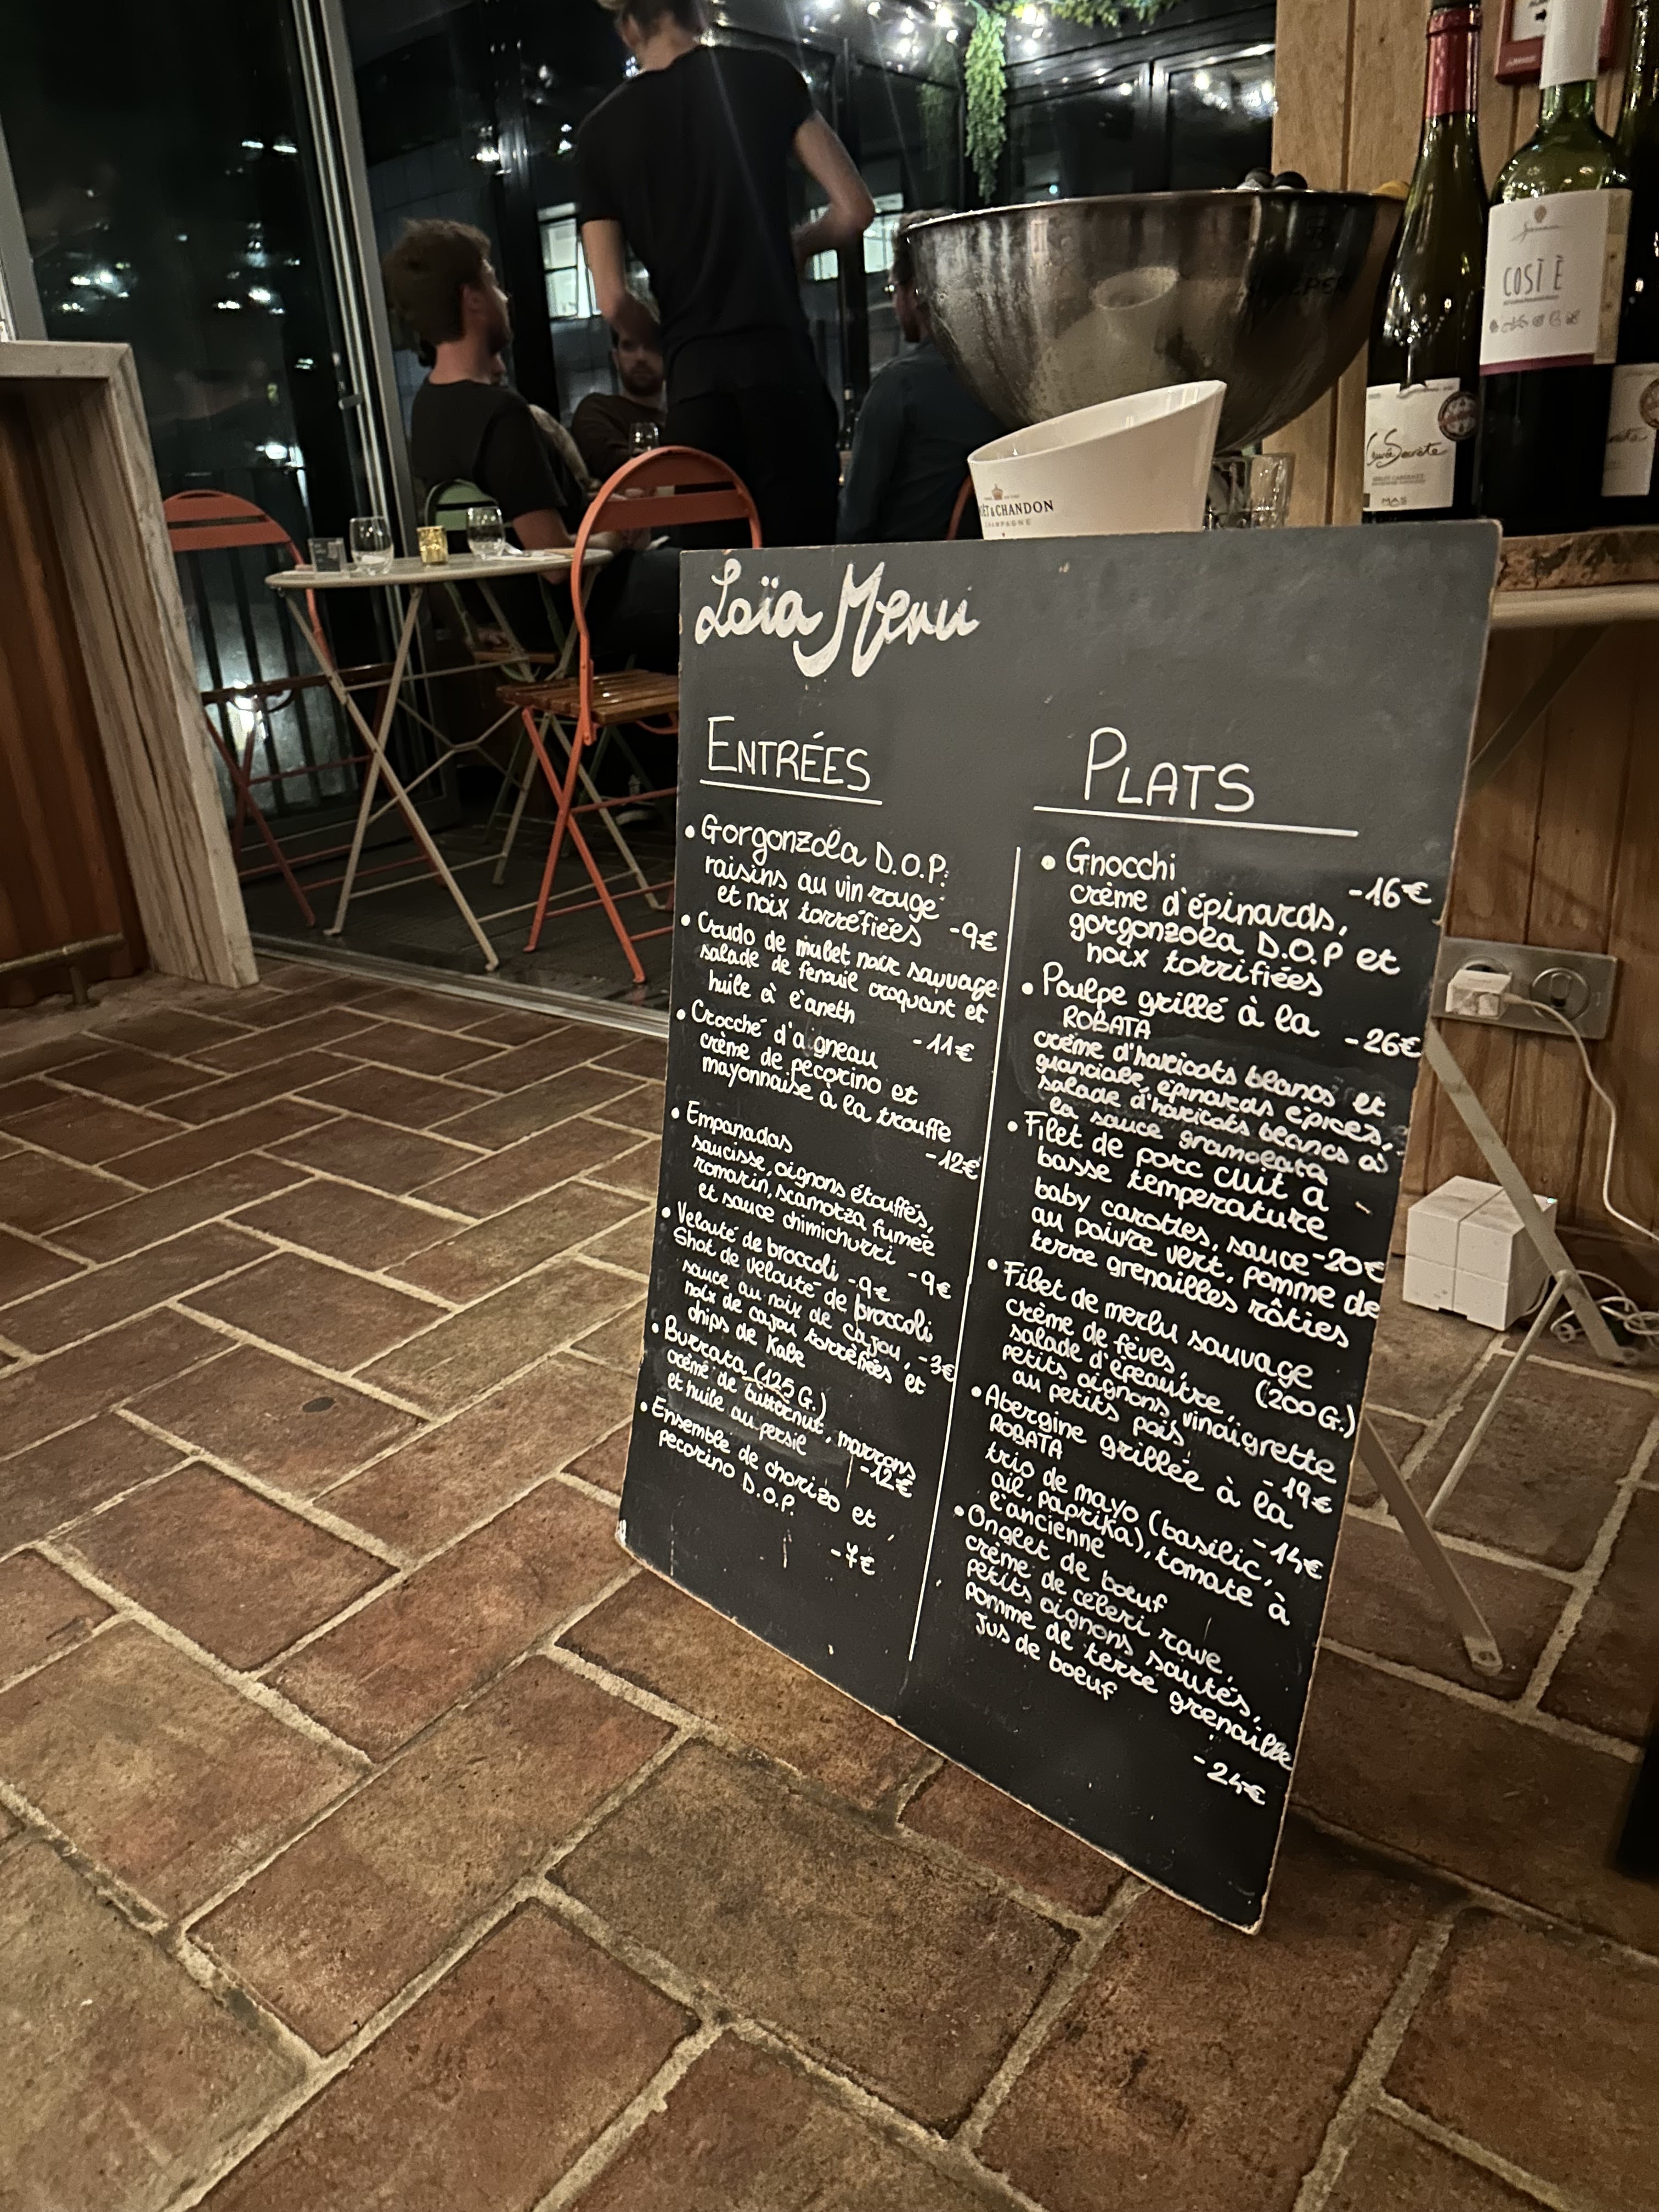 Loïa Menu
ENTRÉES
• Gorgonzola D.O.P.
raisins au vin rouge
et noix torréfiées -9€
• Crudo de mulet noir sauvage
salade de fenouil croquant et
huile à l'aneth
-11€
• Crocché d'agneau
crème de pecorino et
mayonnaise à la trouffe
-12€
• Empanadas
saucisse, oignons étouffés,
romarin, scamorza fumée
et sauce chimichurri -9€
• Velouté de broccoli -9€
Shot de velouté de broccoli
sauce au noix de cajou, -3€
noix de cajou torréfiées et
chips de Kale
• Burrata (125 G.)
crème de butternut, marrons
et huile au persil
-12€
• Ensemble de chorizo et
pecorino D.O.P.
-7€
PLATS
• Gnocchi
-16€
crème d'épinards,
gorgonzola D.O.P et
noix torrifiées
• Poulpe grillé à la
ROBATA -26€
crème d'haricots blancs et
guanciale, épinards épicés,
salade d'haricots blancs à
la sauce gramolata
• Filet de porc cuit à
basse temperature
baby carottes, sauce -20€
au poivre vert, pomme de
terre grenailles rôties
• Filet de merlu sauvage
crème de fèves, (200 G.)
salade d'épeautre,
petits oignons vinaigrette
au petits pois
-19€
• Abergine grillée à la
ROBATA
-14€
trio de mayo (basilic,
ail, paprika), tomate à
l'ancienne
• Onglet de boeuf
crème de céleri rave,
petits oignons sautés,
pomme de terre grenaille
Jus de boeuf
-24€
COSÌ È
MAS
ËT & CHANDON
CHAMPAGNE